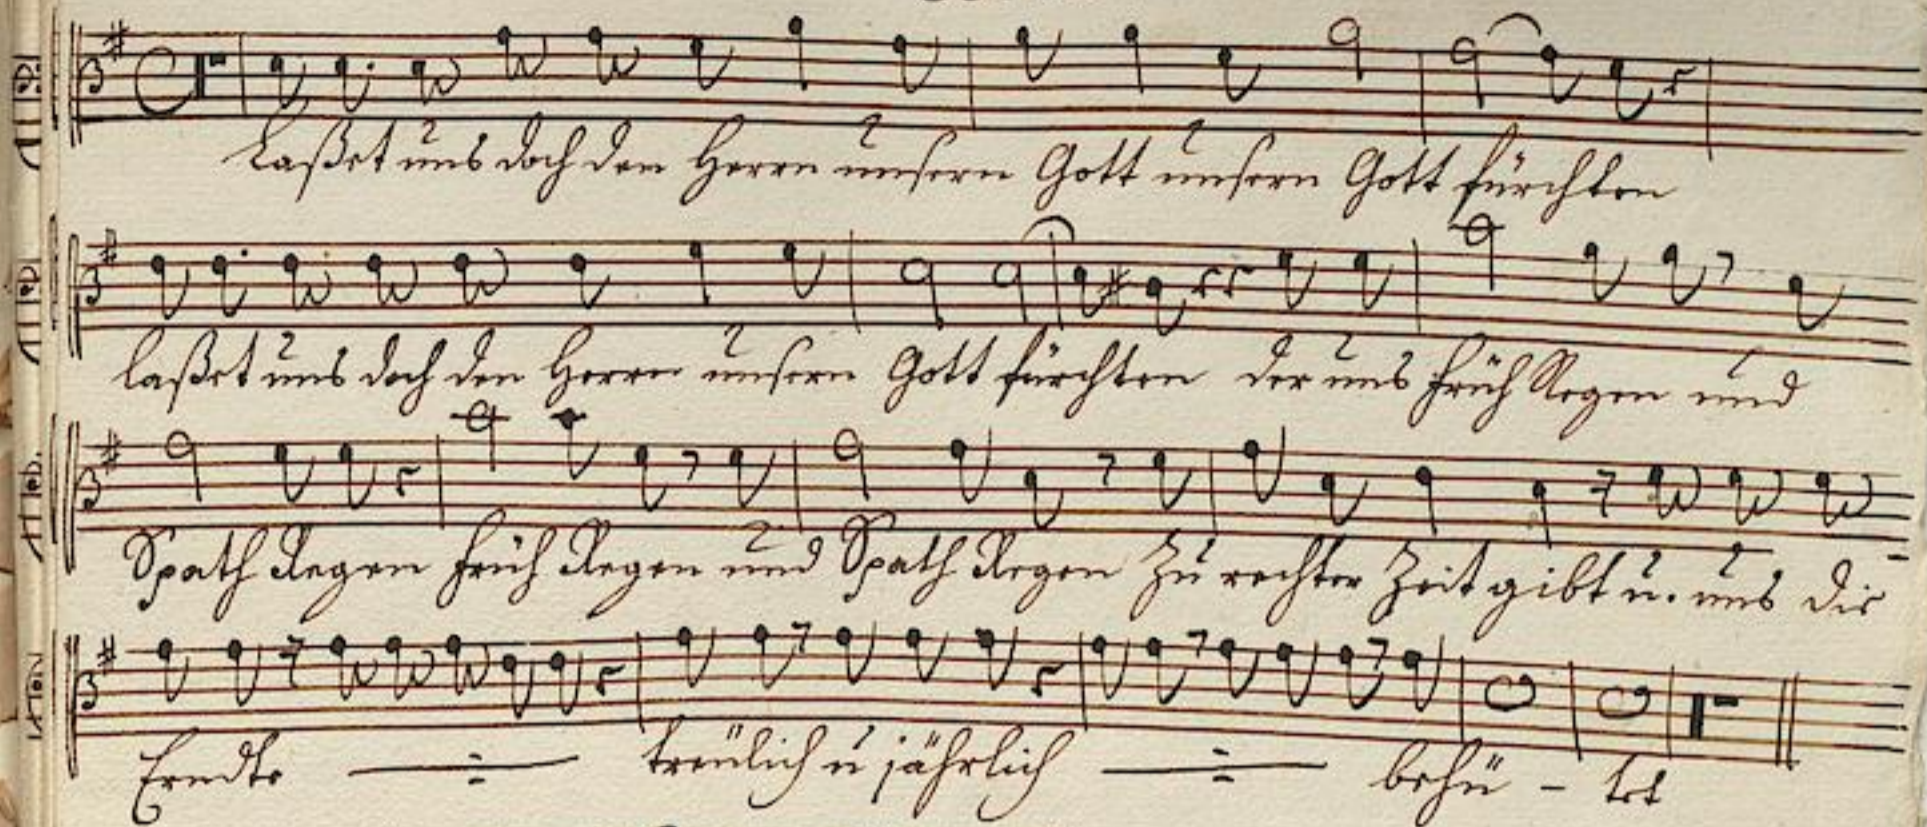 Laßet uns doch den Herrn unsern Gott unsern Gott fürchten
laßet uns doch den Herrn unsern Gott fürchten der uns früh Regen und
Spath Regen früh Regen und Spath Regen Zu rechter Zeit gibt u. uns die
Erndte treülich u jährlich behü - tet